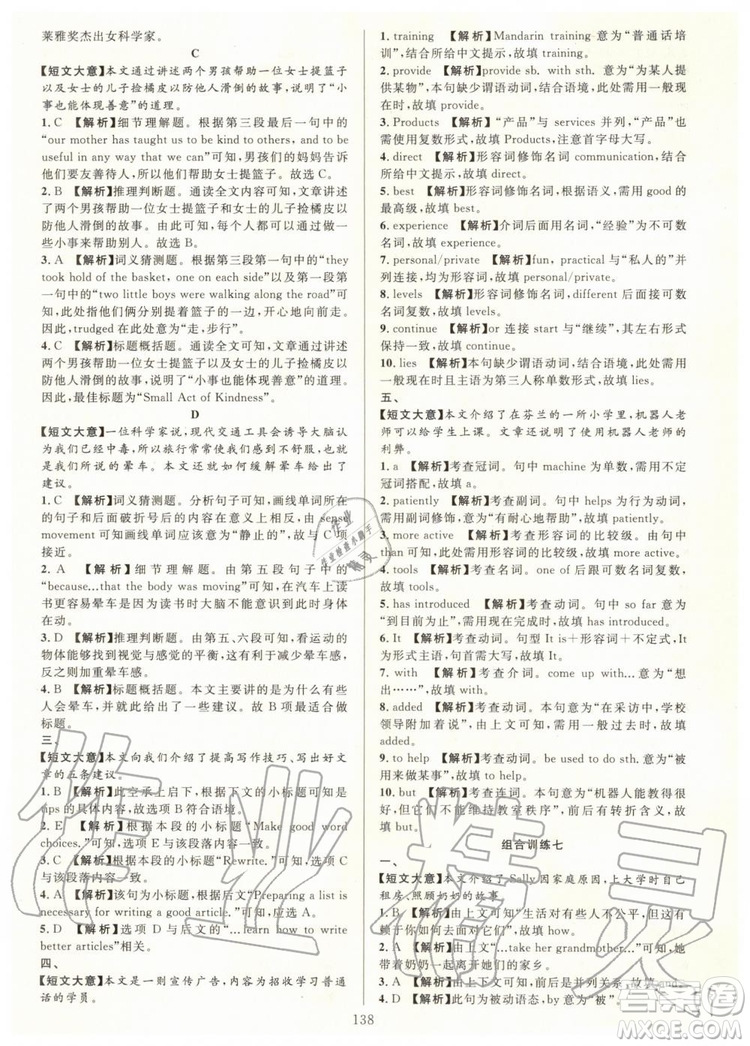 莱雅奖杰出女科学家。
C
【短文大意】本文通过讲述两个男孩帮助一位女士提篮子
以及女士的儿子捡橘皮以防他人滑倒的故事,说明了“小
事也能体现善意”的道理。
1. C 【解析】细节理解题。根据第三段最后一句中的
“our mother has taught us to be kind to others, and to be
useful in any way that we can”可知,男孩们的妈妈告诉
他们要友善待人,所以他们帮助别人。故选 C。
2. B 【解析】推理判断题。通读全文内容可知,文章讲述
了两个男孩帮助一位女士提篮子以及女士的儿子捡橘皮以
防他人滑倒的故事。由此可知,这篇文章的目的是鼓励用
一些小事来帮助别人。故选 B。
3. A 【解析】词义猜测题。根据第三段第一句中的“they
took hold of the basket, one on each side”以及第一段第
一句中的“two little boys were walking along the road”可
知,两个小男孩分别提着篮子的一边,并且在路上行走。
因此,trudged 在此处意为“走,步行”。故选 A。
4. C 【解析】标题概括题。通读全文可知,文章通过讲述
两个男孩帮助一位女士提篮子以及女士的儿子捡橘皮以
防他人滑倒的故事,说明了“小事也能体现善意”的道理。
因此,最佳标题为“Small Act of Kindness”。故选 C。
D
【短文大意】一位科学家说,现代交通工具会诱导大脑认
为我们已经中毒,所以我们旅行时常常感到不舒服,这就
是我们所熟知的晕车。本文还谈及如何缓解晕车并给出
建议。
1. C 【解析】词义猜测题。分析句子可知,画线单词所在
的句子和前面的句子在文意上有转折,由 sense
movement 可知画线单词应为“静止的”。故与 C 项
接近。
2. A 【解析】细节理解题。根据第四段第五句中的
“because...that the body was moving”可知,在汽车上读
书时更易晕车是因为读书时大脑不能意识到身体在移
动。故选 A。
3. D 【解析】推理判断题。由第五、六段可知,看运动的
物体能够影响到视觉与感觉的平衡,会由此减轻晕车感,
反之则加重晕车感。
4. B 【解析】标题概括题。根据文章内容可知,本文主要
讲的是人们为什么会晕车。故 B 项最适合做标题。
三、
【短文大意】本文向我们介绍了提高写作技巧、写出好文
章的五条建议。
1. B 【解析】此空承上启下,根据本段的小标题可知是
tips,故选项 B 符合语境。
2. E 【解析】根据本段的小标题“Make good word
choices.”可知,E 项与该段落内容一致。
3. C 【解析】根据本段的小标题“Rewrite.”可知,C 项与
该段落内容一致。
4. A 【解析】该句为小标题,根据后文“Preparing a list is
necessary for writing a good article.”可知,A 项符合文意。
5. D 【解析】选项 D 与后文中的“...learn how to write
better articles”相关。
四、
【短文大意】本文是一则宣传广告,目的是招收学习普通
话的学员。
1. training 【解析】Mandarin training 意为“普通话培
训”,结合所给中文可知,故填 training。
2. provide 【解析】provide sb. with sth. 意为“为某人提
供某物”,根据语意可知,本句缺少谓语动词,结合语境应
用一般现在时,故填 provide。
3. Products 【解析】“产品”与 services 并列,“产品”
需用复数形式,故填 Products,注意首字母大写。
4. direct 【解析】形容词修饰名词 communication,结合
所给中文可知,故填 direct。
5. best 【解析】形容词修饰名词,根据语义,需用 good 的
最高级,故填 best。
6. experience 【解析】介词后面用名词,“经验”为不可数
名词,故填 experience。
7. personal/private 【解析】fun, practical 与“私人的”并
列连接,均为形容词,故填 personal/private。
8. levels 【解析】形容词修饰名词,different 后面接可数
名词复数,故填 levels。
9. continue 【解析】or 连接 start 与“继续”,其左右形式
保持一致,故填 continue。
10. lies 【解析】本句缺少谓语动词,结合语境可知需用
一般现在时且主语为第三人称单数形式,故填 lies。
五、
【短文大意】本文介绍了在芬兰的一所小学里,机器人老
师可以给学生上课。文章说明了使用机器人老师的
利弊。
1. a 【解析】考查冠词。句中 machine 为单数,需用不定
冠词搭配,故填 a。
2. patiently 【解析】考查副词。句中 helps 为行为动词,
需用副词修饰,意为“有耐心地帮助”,故填 patiently。
3. more active 【解析】考查形容词的比较级。句中意为
“更积极的”,应用形容词的比较级,故填 more active。
4. tools 【解析】考查名词。one of 后跟可数名词复数,故
填 tools。
5. has introduced 【解析】考查动词。句中 so far 意为
“到目前为止”,谓语动词需用现在完成时,主语为第三人
称单数,故填 has introduced。
6. It 【解析】考查动词。句型 It is+形容词+不定式,It
为形式主语,句首需大写,故填 It。
7. with 【解析】考查动词。come up with... 意为“想
出……”,故填 with。
8. added 【解析】考查动词。本句意为“在采访中,学校
领导附加道”,故填 added。
9. to help 【解析】考查动词。be used to do sth. 意为“被
用来做某事”,故填 to help。
10. but 【解析】考查连词。本句意为“机器人能教得很
好,但它们不能维持教室秩序”,前后分句为转折关系,故
填 but。
组合训练七
一、
【短文大意】本文介绍了 Sally 因家庭原因,上大学时自己
租房、照顾奶奶的故事。
1. B 【解析】由上文可知“生活对有些人不公平,但这有
赖于你如何去面对它们”,故填 how。
2. A 【解析】由上文“...take her grandmother...”可知,她
带着奶奶一起离开她们的家乡。
3. C 【解析】由上下文可知,前后是并列关系,故填 and。
4. D 【解析】此句为被动语态,意为“被”。
138